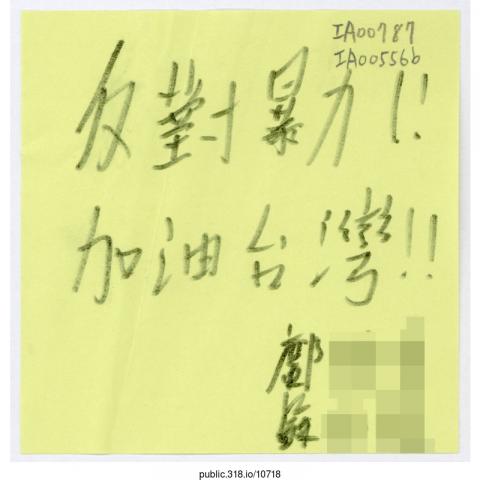 IA00787
IA00556b
反對暴力!!
加油台灣!!
鄺
public.318.io/10718